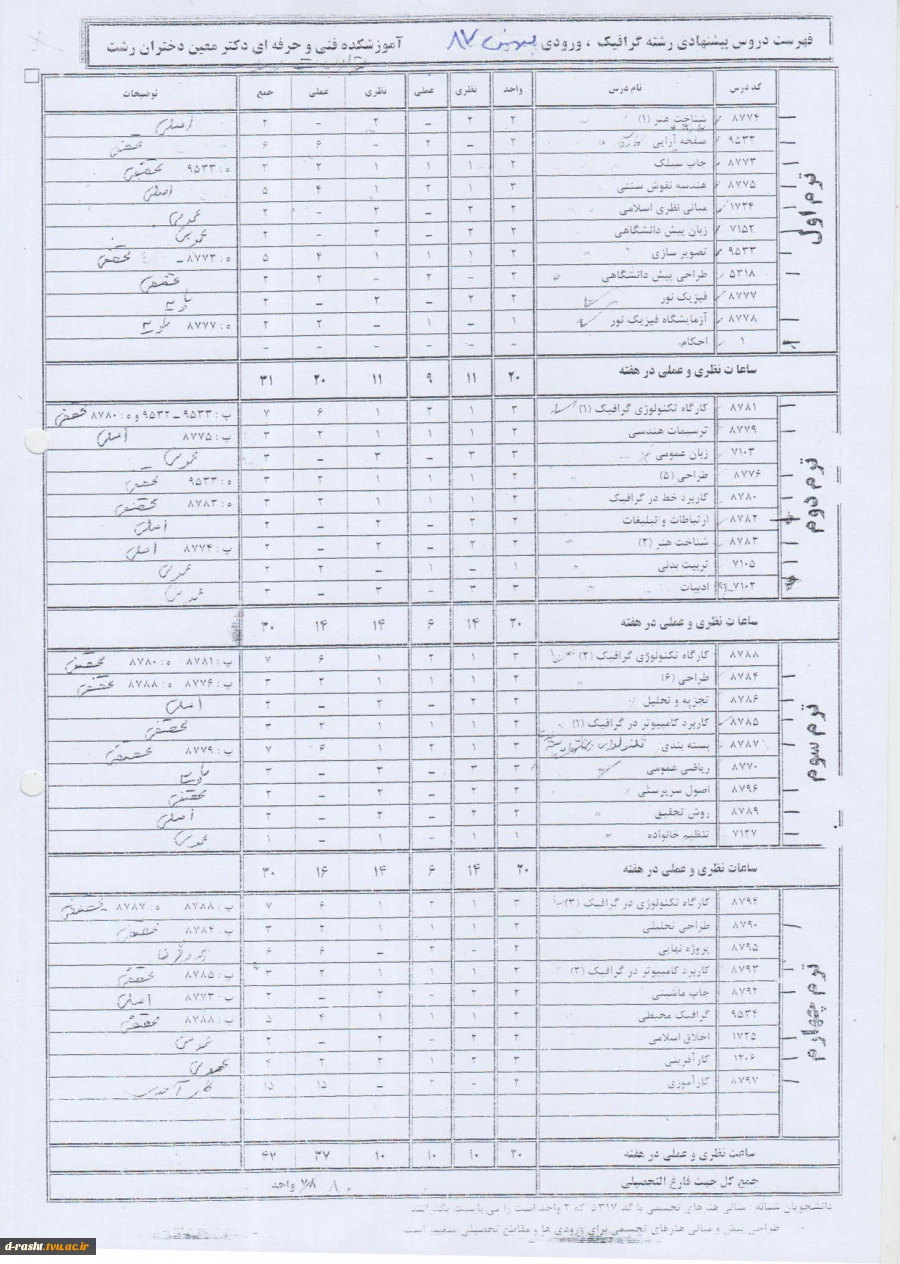 فهرست دروس پیشنهادی رشته گرافیک ، ورودی بهمن ۸۷ آموزشکده فنی و حرفه ای دکتر معین دختران رشت
کد درس نام درس واحد نظری عملی نظری عملی جمع توضیحات
ترم اول
۸۷۷۴ شناخت هنر (۱) ۲ ۲ – ۲ – ۲ اصلی
۹۵۳۲ صفحه آرایی ۲ – ۲ – ۶ ۶ تخصصی
۸۷۷۳ چاپ سیلک ۲ ۱ ۱ ۱ ۲ ۳ ه : ۹۵۳۳ تخصصی
۸۷۷۵ هندسه نقوش سنتی ۳ ۱ ۲ ۱ ۴ ۵ اصلی
۱۷۲۴ مبانی نظری اسلامی ۲ ۲ – ۲ – ۲ عمومی
۷۱۵۲ زبان پیش دانشگاهی ۲ ۲ – ۲ – ۲ عمومی
۹۵۳۳ تصویر سازی ۲ ۱ ۱ ۱ ۴ ۵ ه : ۸۷۷۳ تخصصی
۵۳۱۸ طراحی پیش دانشگاهی ۲ – ۲ – ۲ ۲ تخصصی
۸۷۷۷ فیزیک نور ۲ ۲ – ۲ – ۲ پایه
۸۷۷۸ آزمایشگاه فیزیک نور ۱ – ۱ – ۲ ۲ ه : ۸۷۷۷ پایه
۱ احکام – – – – – –
ساعات نظری و عملی در هفته ۲۰ ۱۱ ۹ ۱۱ ۲۰ ۳۱
ترم دوم
۸۷۸۱ کارگاه تکنولوژی گرافیک (۱) ۳ ۱ ۲ ۱ ۶ ۷ پ : ۹۵۳۳ – ۹۵۳۲ و ه : ۸۷۸۰ تخصصی
۸۷۷۹ ترسیمات هندسی ۲ ۱ ۱ ۱ ۲ ۳ پ : ۸۷۷۵ اصلی
۷۱۰۳ زبان عمومی ۳ ۳ – ۳ – ۳ عمومی
۸۷۷۶ طراحی (۵) ۲ ۱ ۱ ۱ ۲ ۳ ه : ۹۵۳۳ تخصصی
۸۷۸۰ کاربرد خط در گرافیک ۲ ۱ ۱ ۱ ۲ ۳ ه : ۸۷۸۳ تخصصی
۸۷۸۲ ارتباطات و تبلیغات ۲ ۲ – ۲ – ۲ اصلی
۸۷۸۳ شناخت هنر (۲) ۲ ۲ – ۲ – ۲ پ : ۸۷۷۴ اصلی
۷۱۰۵ تربیت بدنی ۱ – ۱ – ۲ ۲ عمومی
۷۱۰۲ ادبیات ۳ ۳ – ۳ – ۳ عمومی
ساعات نظری و عملی در هفته ۲۰ ۱۴ ۶ ۱۴ ۱۶ ۳۰
ترم سوم
۸۷۸۸ کارگاه تکنولوژی گرافیک (۲) ۳ ۱ ۲ ۱ ۶ ۷ پ : ۸۷۸۱ ه : ۸۷۸۰ تخصصی
۸۷۸۴ طراحی (۶) ۲ ۱ ۱ ۱ ۲ ۳ پ : ۸۷۷۶ ه : ۸۷۸۸ تخصصی
۸۷۸۶ تجزیه و تحلیل ۲ ۲ – ۲ – ۲ اصلی
۸۷۸۵ کاربرد کامپیوتر در گرافیک (۱) ۲ ۱ ۱ ۱ ۲ ۳ تخصصی
۸۷۸۷ بسته بندی ۳ ۱ ۲ ۱ ۶ ۷ پ : ۸۷۷۹ تخصصی
۸۷۷۰ ریاضی عمومی ۳ ۳ – ۳ – ۳ پایه
۸۷۹۶ اصول سرپرستی ۲ ۲ – ۲ – ۲ تخصصی
۸۷۸۹ روش تحقیق ۲ ۲ – ۲ – ۲ اصلی
۷۱۲۷ تنظیم خانواده ۱ ۱ – ۱ – ۱ عمومی
ساعات نظری و عملی در هفته ۲۰ ۱۴ ۶ ۱۴ ۱۶ ۳۰
ترم چهارم
۸۷۹۴ کارگاه تکنولوژی در گرافیک (۳) ۳ ۱ ۲ ۱ ۶ ۷ پ : ۸۷۸۸ ه : ۸۷۸۷ تخصصی
۸۷۹۰ طراحی تحلیلی ۲ ۱ ۱ ۱ ۲ ۳ پ : ۸۷۸۴ تخصصی
۸۷۹۵ پروژه نهایی ۲ – ۲ – ۶ ۶
۸۷۹۳ کاربرد کامپیوتر در گرافیک (۲) ۲ ۱ ۱ ۱ ۲ ۳ پ : ۸۷۸۵ تخصصی
۸۷۹۲ چاپ ماشینی ۲ ۲ – ۲ – ۲ پ : ۸۷۷۳ اصلی
۹۵۳۴ گرافیک محیطی ۲ ۱ ۱ ۱ ۴ ۵ پ : ۸۷۸۸ تخصصی
۱۷۲۵ اخلاق اسلامی ۲ ۲ – ۲ – ۲ عمومی
۱۲۰۶ کارآفرینی ۳ ۲ ۱ ۲ ۲ ۴ عمومی
۸۷۹۷ کارآموزی ۲ – ۲ – ۱۵ ۱۵
ساعت نظری و عملی در هفته ۲۰ ۱۰ ۱۰ ۱۰ ۳۷ ۴۷
جمع کل جهت فارغ التحصیلی ۸۰ واحد
دانشجویان شبانه : مبانی هنرهای تجسمی با کد ۵۳۱۷ که ۲ واحد است را می بایست بگذرانند
طراحی پیش و مبانی هنرهای تجسمی برای ورودی ها و مقاطع تحصیلی متغیر است
d-rasht.tvu.ac.ir